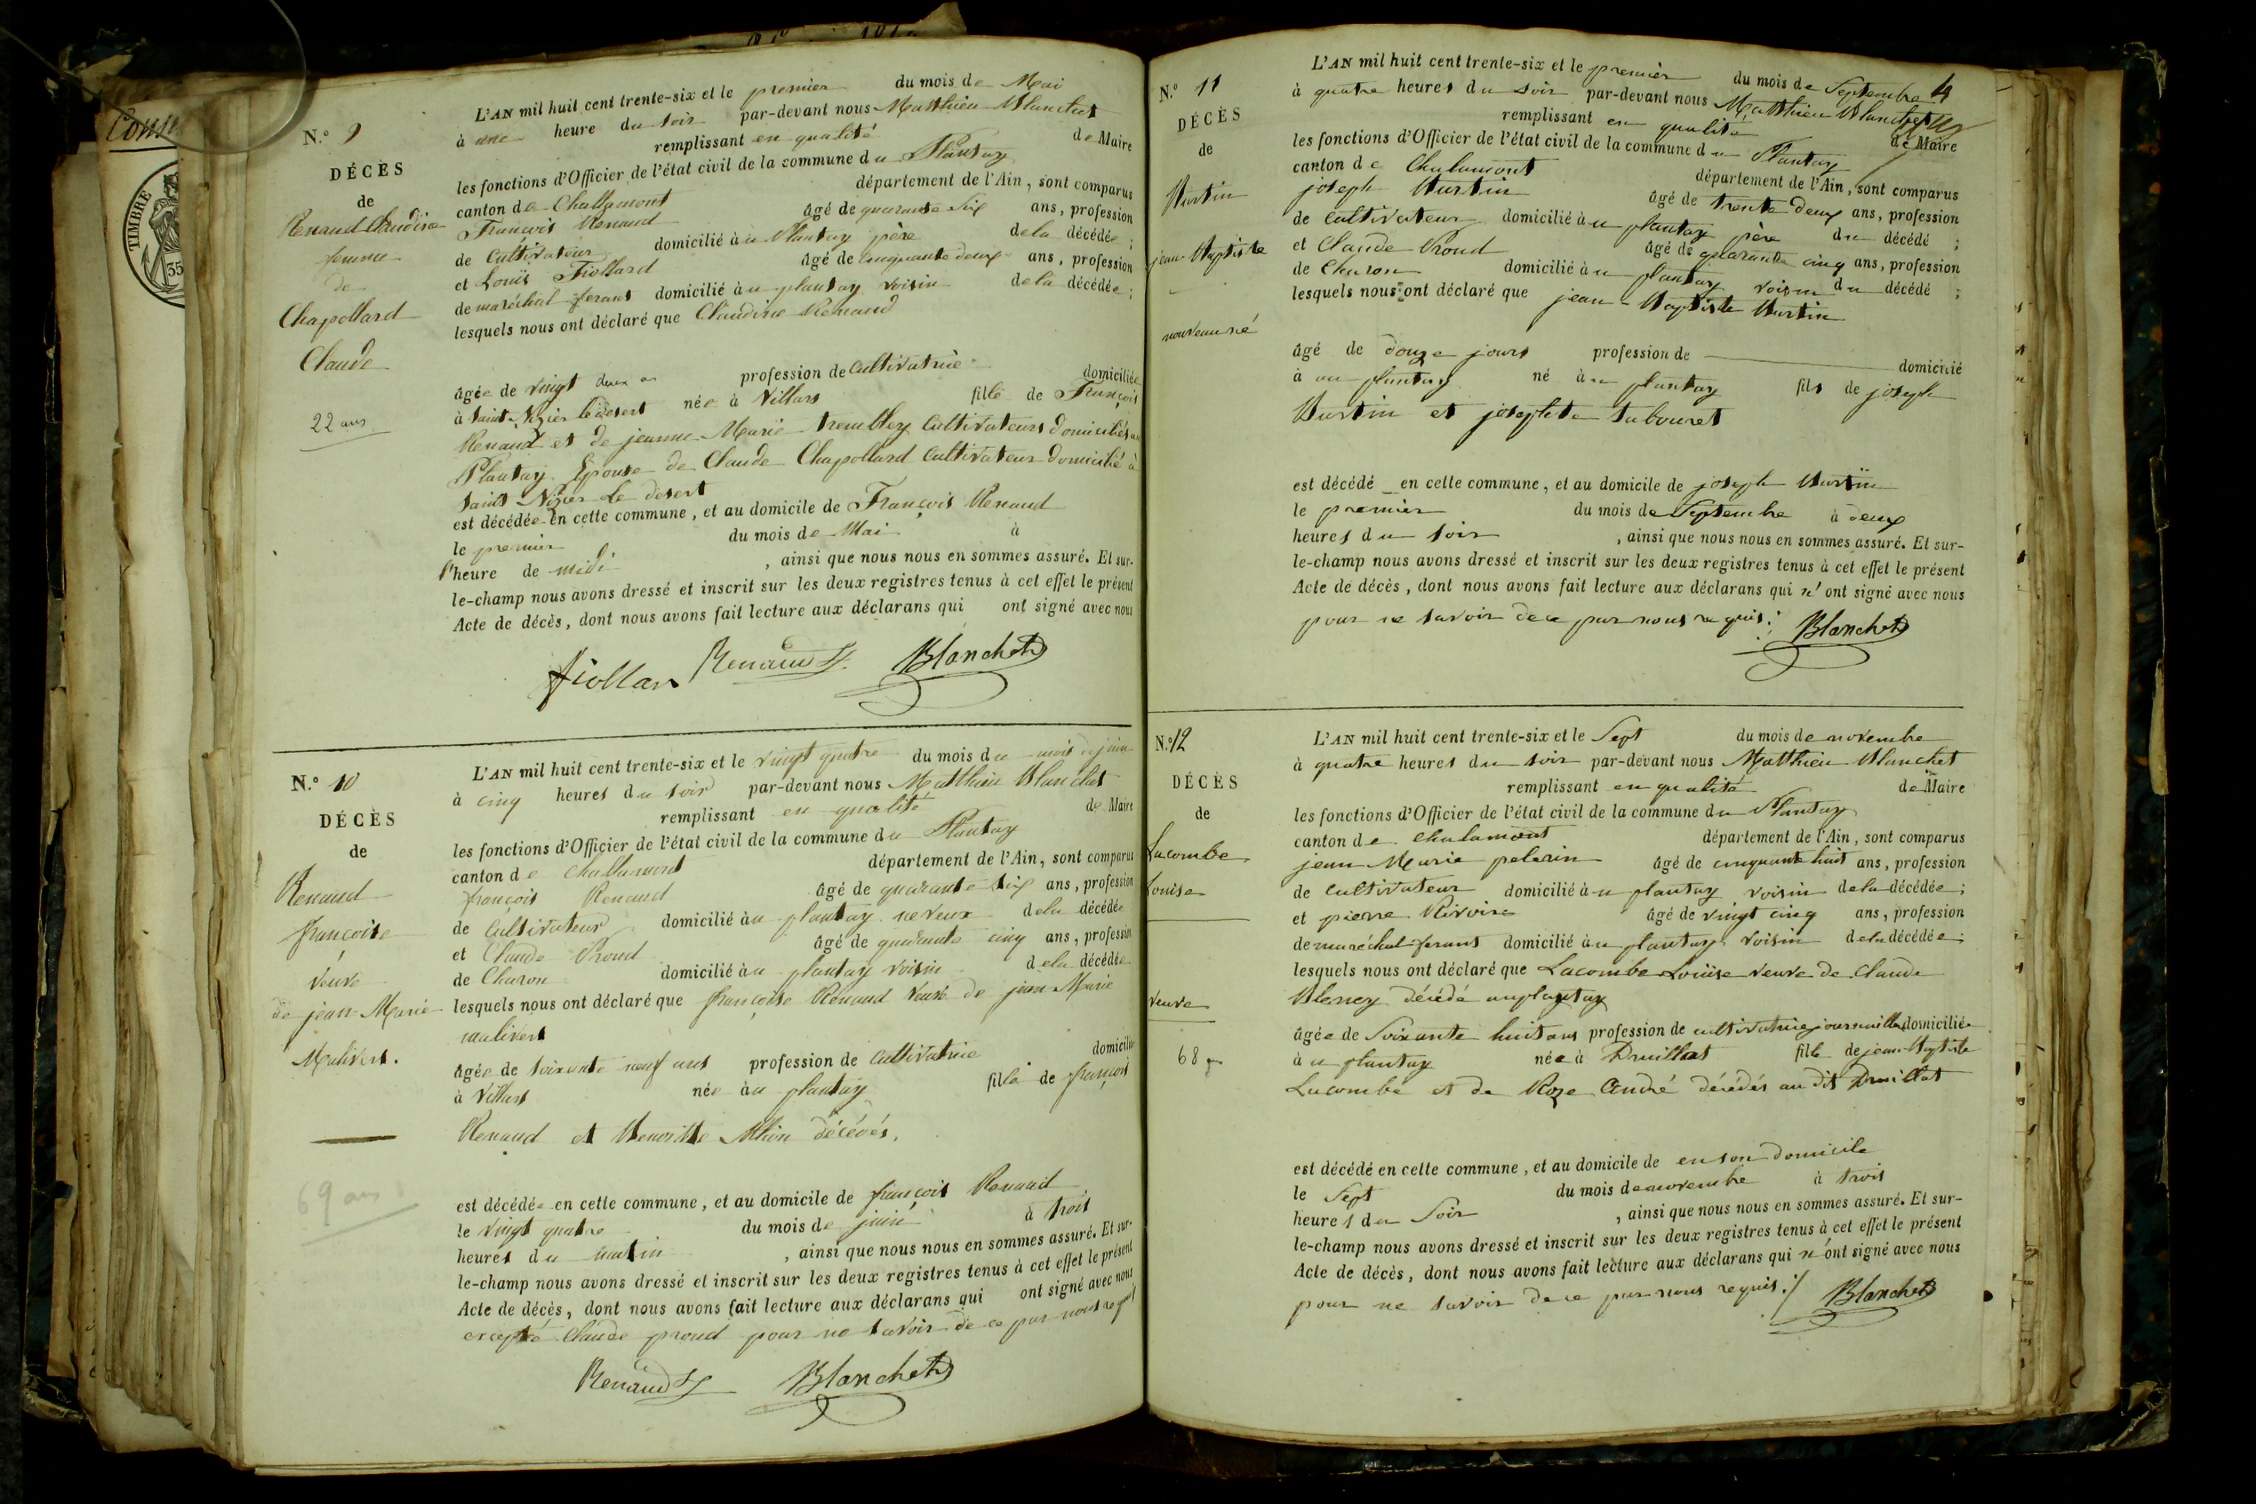 Cons
TIMBRE
35
N.º 9
DÉCÈS
de
Renaud Claudine
femme
de
Chapollard
Claude
22 ans
L'AN mil huit cent trente-six et le premier du mois de Mai
à une heure du soir par-devant nous Matthieu Blanchet
remplissant en qualité de Maire
les fonctions d'Officier de l'état civil de la commune du Plantay
canton de Challamont département de l'Ain, sont comparus
François Renaud âgé de quarante six ans, profession
de Cultivateur domicilié au Plantay père de la décédée ;
et Louis Fiollard âgé de cinquante deux ans, profession
de maréchal ferant domicilié au plantay voisin de la décédée ;
lesquels nous ont déclaré que Claudine Renaud
âgée de vingt deux an profession de Cultivatrice domiciliée
à Saint Nizier le désert née à Villars fille de François
Renaud et de jeanne Marie trembley Cultivateurs domiciliés au
Plantay Epouse de Claude Chapollard Cultivateur domicilié à
Saint Nizier le désert
est décédée en cette commune, et au domicile de François Renaud
le premier du mois de Mai à
l'heure de midi , ainsi que nous nous en sommes assuré. Et sur-
le-champ nous avons dressé et inscrit sur les deux registres tenus à cet effet le présent
Acte de décès, dont nous avons fait lecture aux déclarans qui ont signé avec nous
fiollar Renaud Blanchet
N.º 10
DÉCÈS
de
Renaud
françoise
veuve
de jean Marie
Malivert.
69 ans
L'AN mil huit cent trente-six et le vingt quatre du mois du mois de juin
à cinq heures du soir par-devant nous Matthieu Blanchet
remplissant en qualité de Maire
les fonctions d'Officier de l'état civil de la commune du Plantay
canton de Challamont département de l'Ain, sont comparus
françois Renaud âgé de quarante six ans, profession
de Cultivateur domicilié au plantay neveux de la décédée
et Claude Proud âgé de quarante cinq ans, profession
de Charon domicilié au plantay voisin de la décédée
lesquels nous ont déclaré que françoise Renaud veuve de jean Marie
malivert
âgée de soixante neuf ans profession de cultivatrice domiciliée
à Villars née au plantay fille de françois
Renaud et Benoitte décédés,
est décédée en cette commune, et au domicile de françois Renaud
le vingt quatre du mois de juin à trois
heures du matin , ainsi que nous nous en sommes assuré. Et sur-
le-champ nous avons dressé et inscrit sur les deux registres tenus à cet effet le présent
Acte de décès, dont nous avons fait lecture aux déclarans qui ont signé avec nous
excepté Claude proud pour ne savoir de ce par nous requis
Renaud Blanchet
4
N.º 11
DÉCÈS
de
Burtin
jean-Baptiste
nouveau né
L'AN mil huit cent trente-six et le premier du mois de Septembre
à quatre heures du soir par-devant nous Matthieu Blanchet
remplissant en qualité de Maire
les fonctions d'Officier de l'état civil de la commune du Plantay
canton de Chalamont département de l'Ain, sont comparus
joseph Burtin âgé de trente deux ans, profession
de cultivateur domicilié au plantay père du décédé ;
et Claude Proud âgé de quarante cinq ans, profession
de Charon domicilié au plantay voisin du décédé ;
lesquels nous ont déclaré que jean-Baptiste Burtin
âgé de douze jours profession de domicilié
à au plantay né au plantay fils de joseph
Burtin et josephte Tabouret
est décédé en cette commune, et au domicile de joseph Burtin
le premier du mois de Septembre à deux
heures du soir , ainsi que nous nous en sommes assuré. Et sur-
le-champ nous avons dressé et inscrit sur les deux registres tenus à cet effet le présent
Acte de décès, dont nous avons fait lecture aux déclarans qui n'ont signé avec nous
pour ne savoir de ce par nous requis. Blanchet
N.º 12
DÉCÈS
de
Lacombe
Louise
veuve
68
L'AN mil huit cent trente-six et le Sept du mois de novembre
à quatre heures du soir par-devant nous Matthieu Blanchet
remplissant en qualité de Maire
les fonctions d'Officier de l'état civil de la commune du Plantay
canton de chalamont département de l'Ain, sont comparus
jean Marie pelerin âgé de cinquante huit ans, profession
de cultivateur domicilié au plantay voisin de la décédée ;
et pierre Rivoire âgé de vingt cinq ans, profession
de maréchal ferant domicilié au plantay voisin de la décédée ;
lesquels nous ont déclaré que Lacombe Louise veuve de Claude
décédé au plantay
âgée de Soixante huit ans profession de cultivatrice journaillère domiciliée
à u plantay née à Druillat fille de jean-Baptiste
Lacombe et de Roze André décédés au dit Druillat
est décédé en cette commune, et au domicile de en son domicile
le Sept du mois de novembre à trois
heures du Soir , ainsi que nous nous en sommes assuré. Et sur-
le-champ nous avons dressé et inscrit sur les deux registres tenus à cet effet le présent
Acte de décès, dont nous avons fait lecture aux déclarans qui n'ont signé avec nous
pour ne savoir de ce par nous requis ./ Blanchet